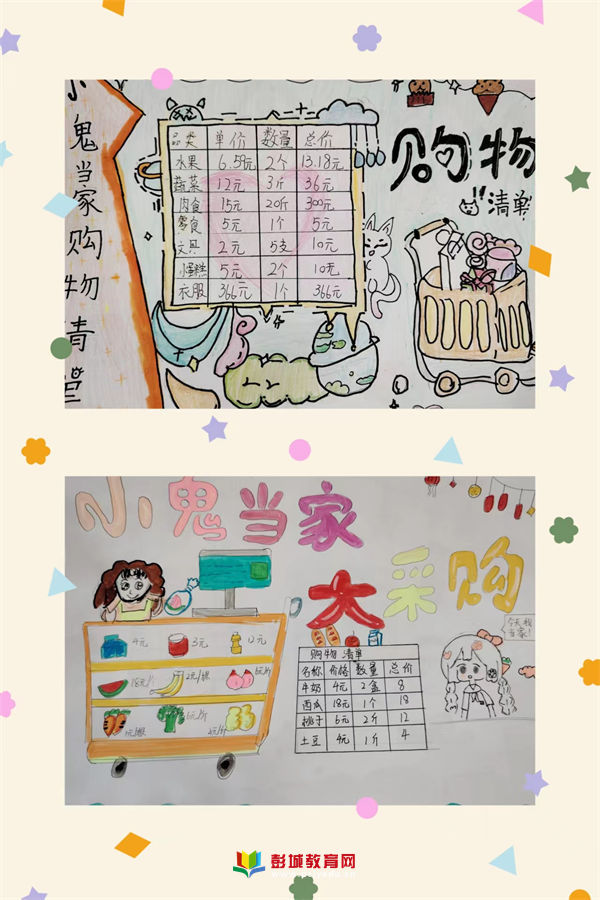 小鬼当家购物清单
品类 单价 数量 总价
水果 6.59元 2个 13.18元
蔬菜 12元 3斤 36元
肉食 15元 20斤 300元
零食 5元 1个 5元
文具 2元 5支 10元
小蛋糕 5元 2个 10元
衣服 366元 1个 366元
购物
清单
小鬼当家
大采购
今天我
当家!
4元 3元 12元
18元/个 2元/根 6元/斤
1元/根 5元/斤 4元/斤
购物清单
名称 价格 数量 总价
牛奶 4元 2盒 8
西瓜 18元 1个 18
桃子 6元 2斤 12
土豆 4元 1斤 4
彭城教育网